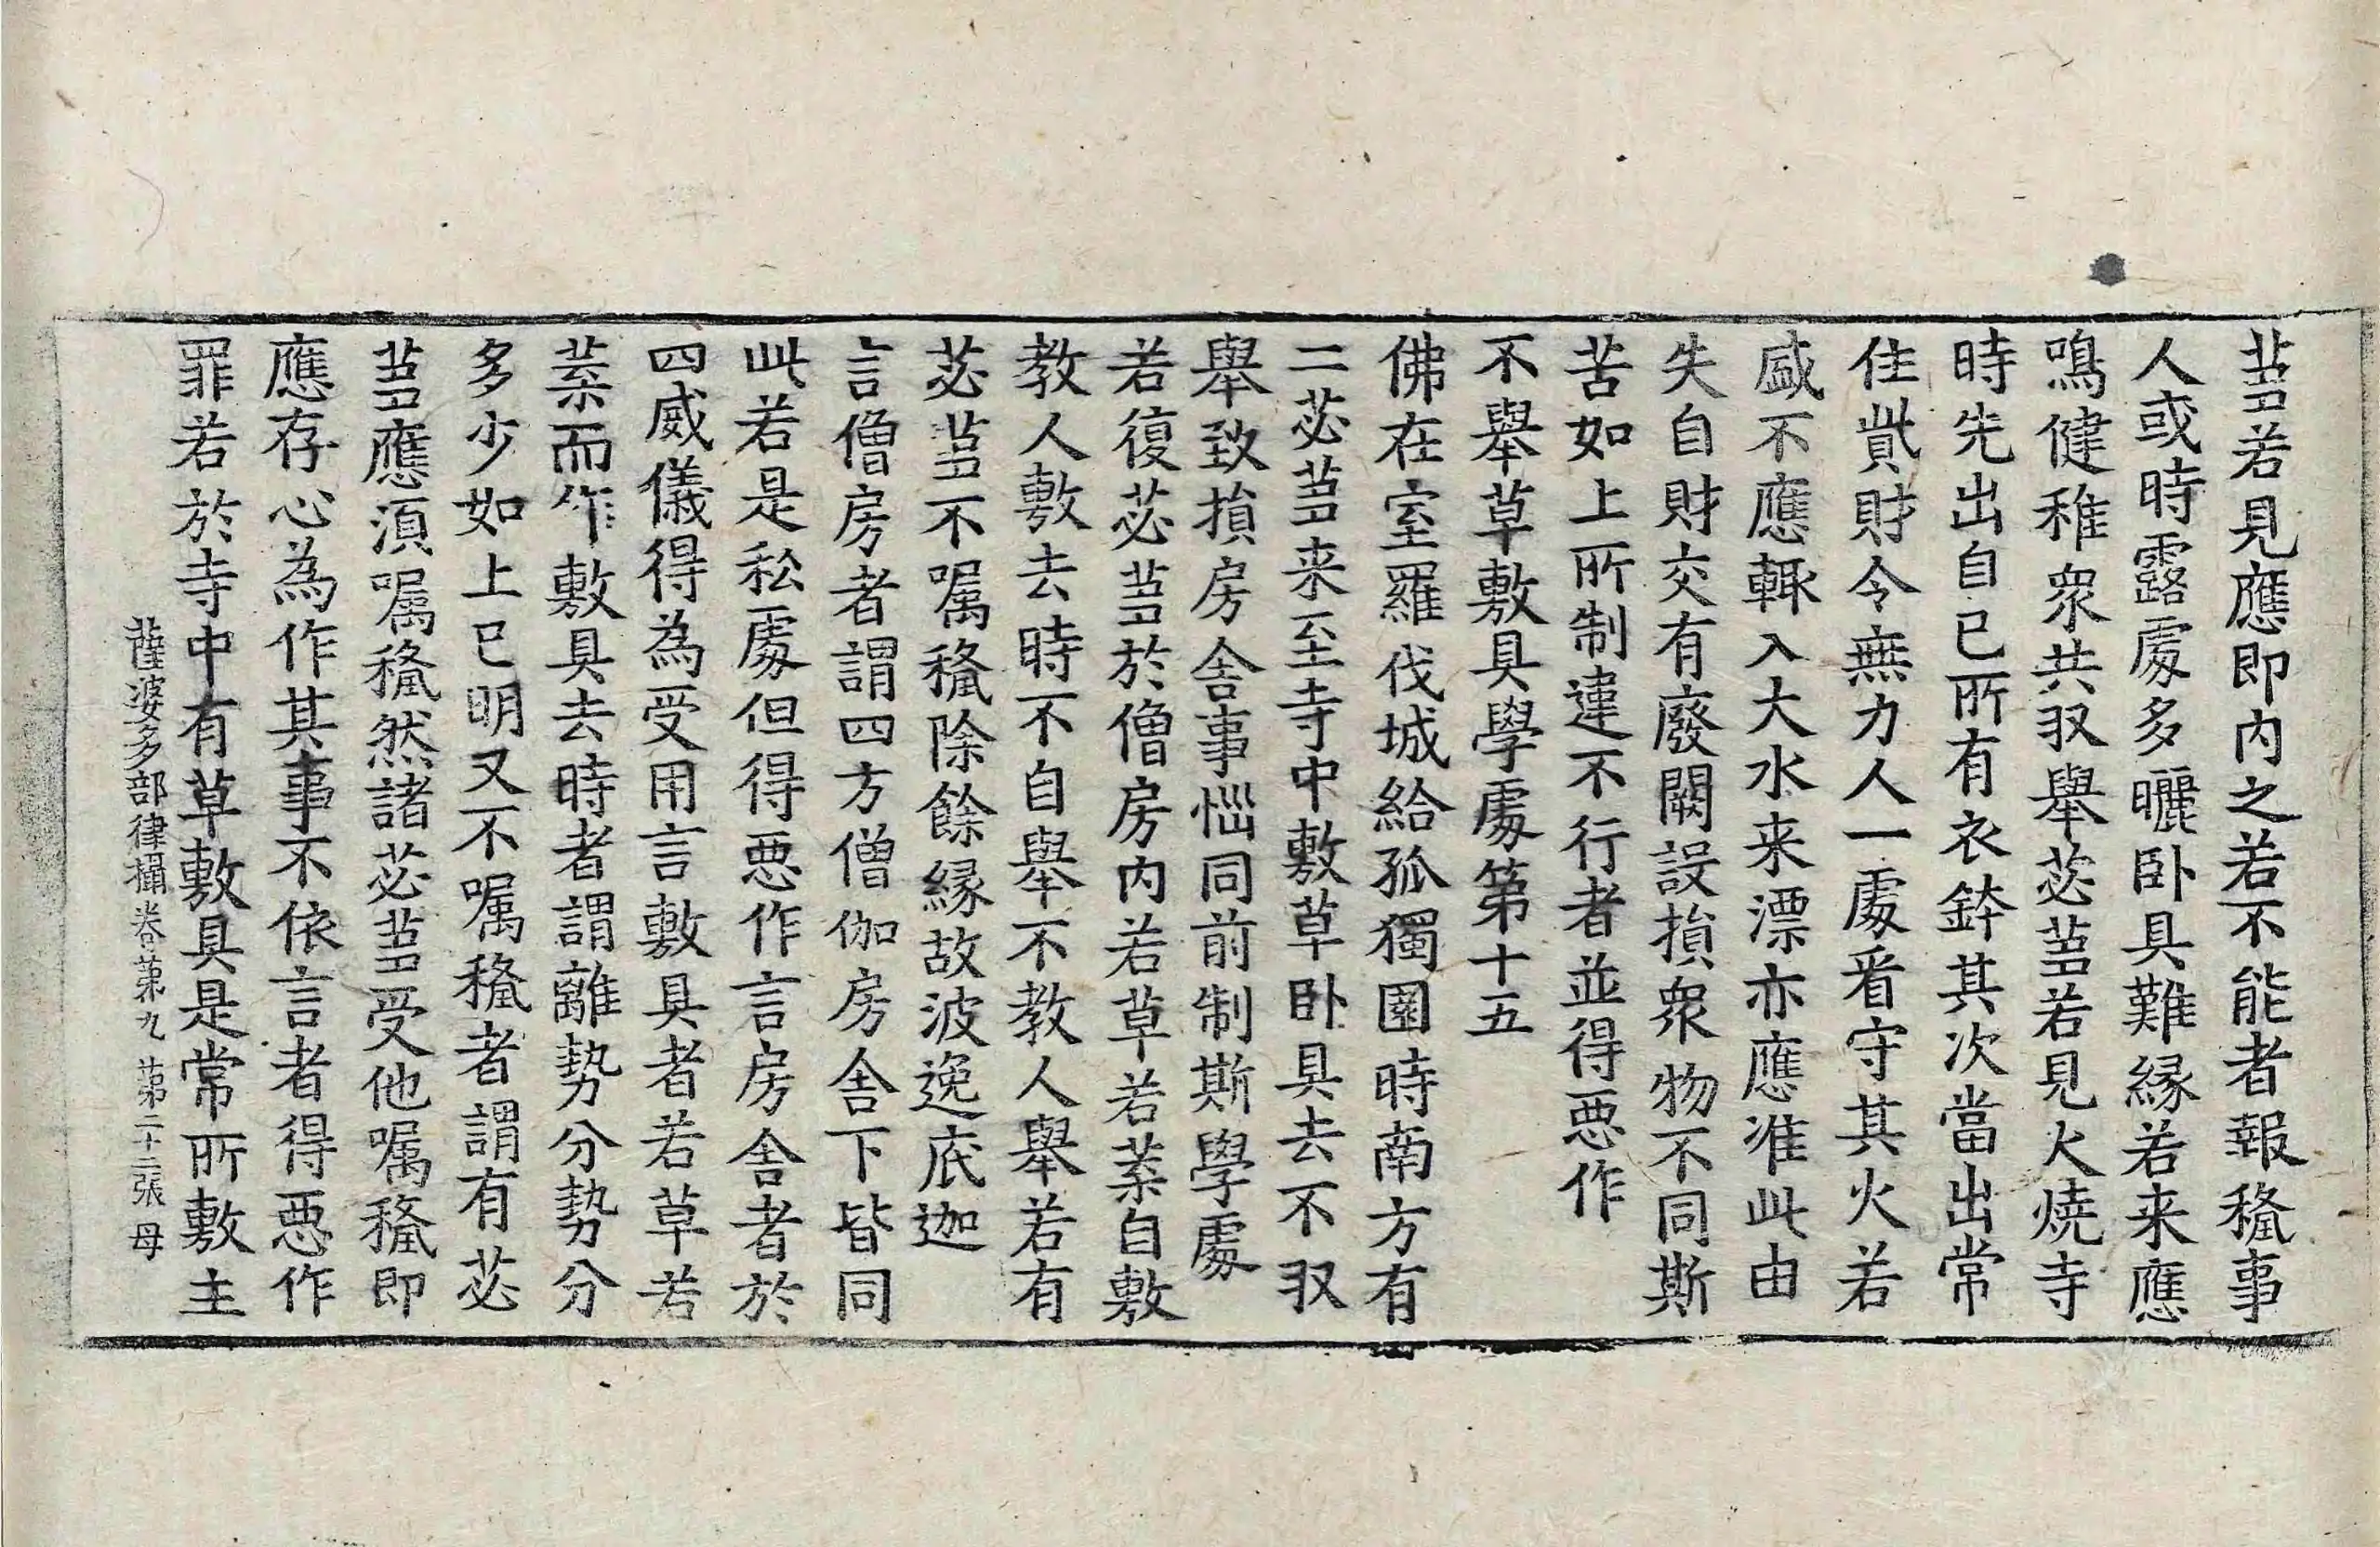 蒭若見應即內之若不能者報稱事
人或時露處多曬卧具難緣若来應
鳴健稚衆共収舉苾蒭若見火燒寺
時先出自己所有衣鉢其次當出常
住貲財令無力人一處看守其火若
盛不應輙入大水来漂亦應准此由
失自財交有廢闕設損衆物不同斯
苦如上所制違不行者並得惡作
不舉草敷具學處第十五
佛在室羅伐城給孤獨園時南方有
二苾蒭来至寺中敷草卧具去不収
舉致損房舍事惱同前制斯學處
若復苾蒭於僧房內若草若葉自敷
教人敷去時不自舉不教人舉若有
苾蒭不囑稱除餘緣故波逸底迦
言僧房者謂四方僧伽房舍下皆同
此若是私處但得惡作言房舍者於
四威儀得為受用言敷具者若草若
葉而作敷具去時者謂離勢分勢分
多少如上已明又不囑稱者謂有苾
蒭應須囑稱然諸苾蒭受他囑稱即
應存心為作其事不依言者得惡作
罪若於寺中有草敷具是常所敷主
薩婆多部律攝卷第九 第二十二張 母